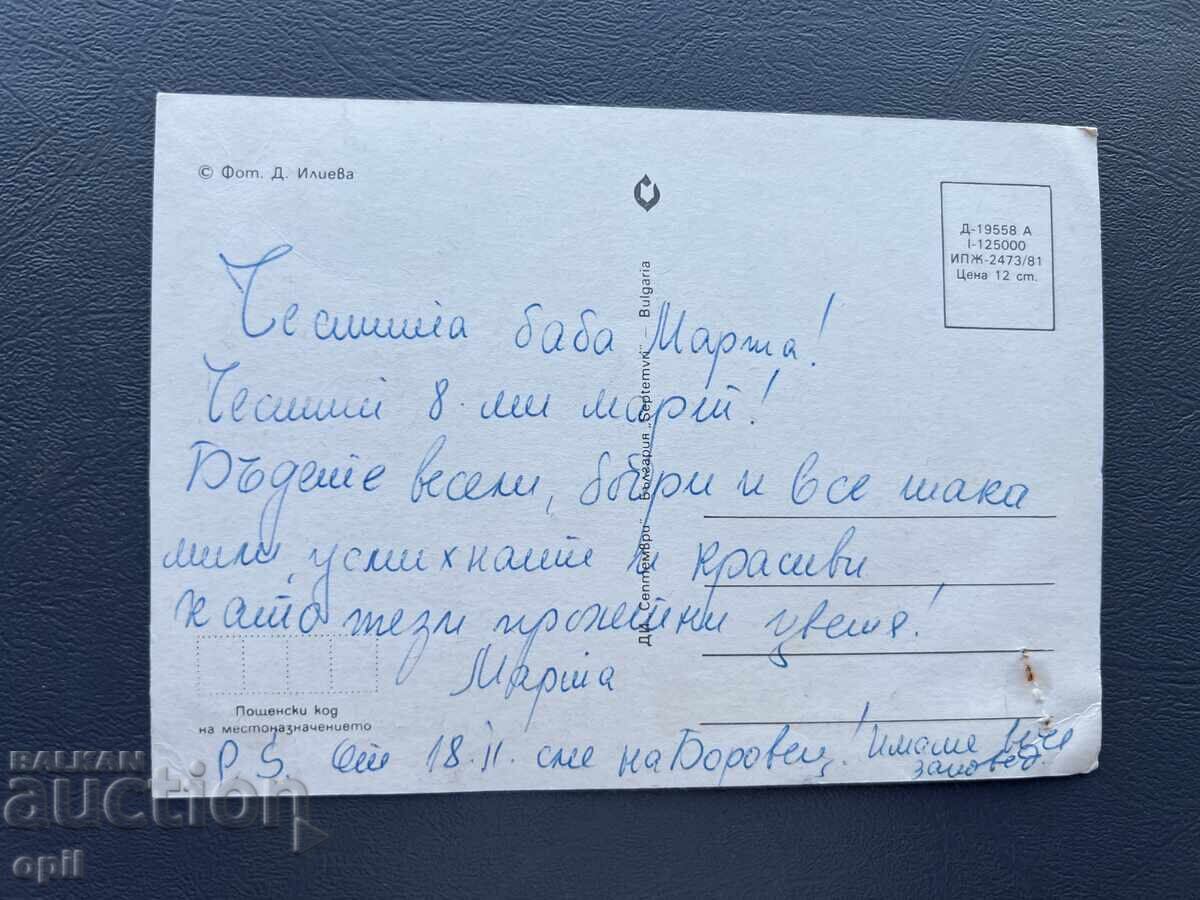 © Фот. Д. Илиева
Д-19558 А
I-125000
ИПЖ-2473/81
Цена 12 ст.
ДИ „Септември" България „Septemvri" - Bulgaria
Честита баба Марта!
Честит 8-ми март!
Бъдете весели, бодри и все така
мили, усмихнати и красиви
като тези пролетни цветя!
Марта
Пощенски код
на местоназначението
P.S. От 18.II. сме на Боровец! Имаме вече
заповед.
BALKAN
auction
opil